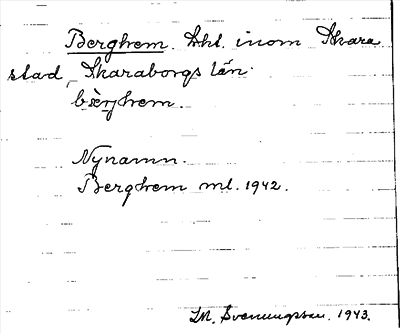 Berghem. Lht. inom Skara
stad, Skaraborgs län.
bær̀jhem.
Nynamn.
Berghem ml. 1942.
M. Svenungsson. 1943.